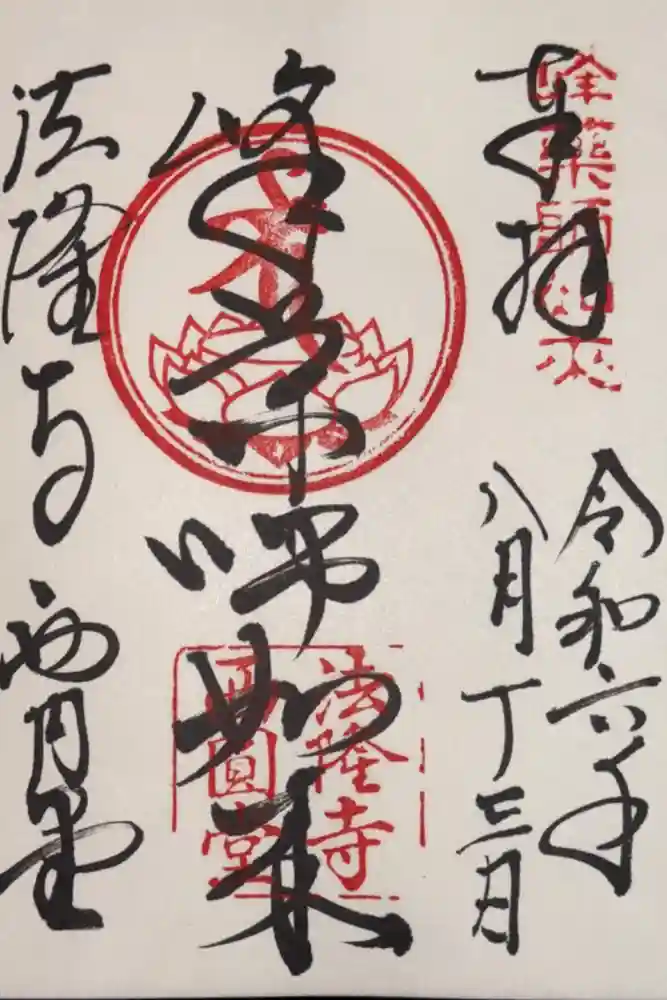 奉拝
峰藥師如来
令和六年
八月十三日
峰薬師如来
法隆寺
西圓堂
法隆寺 西円堂